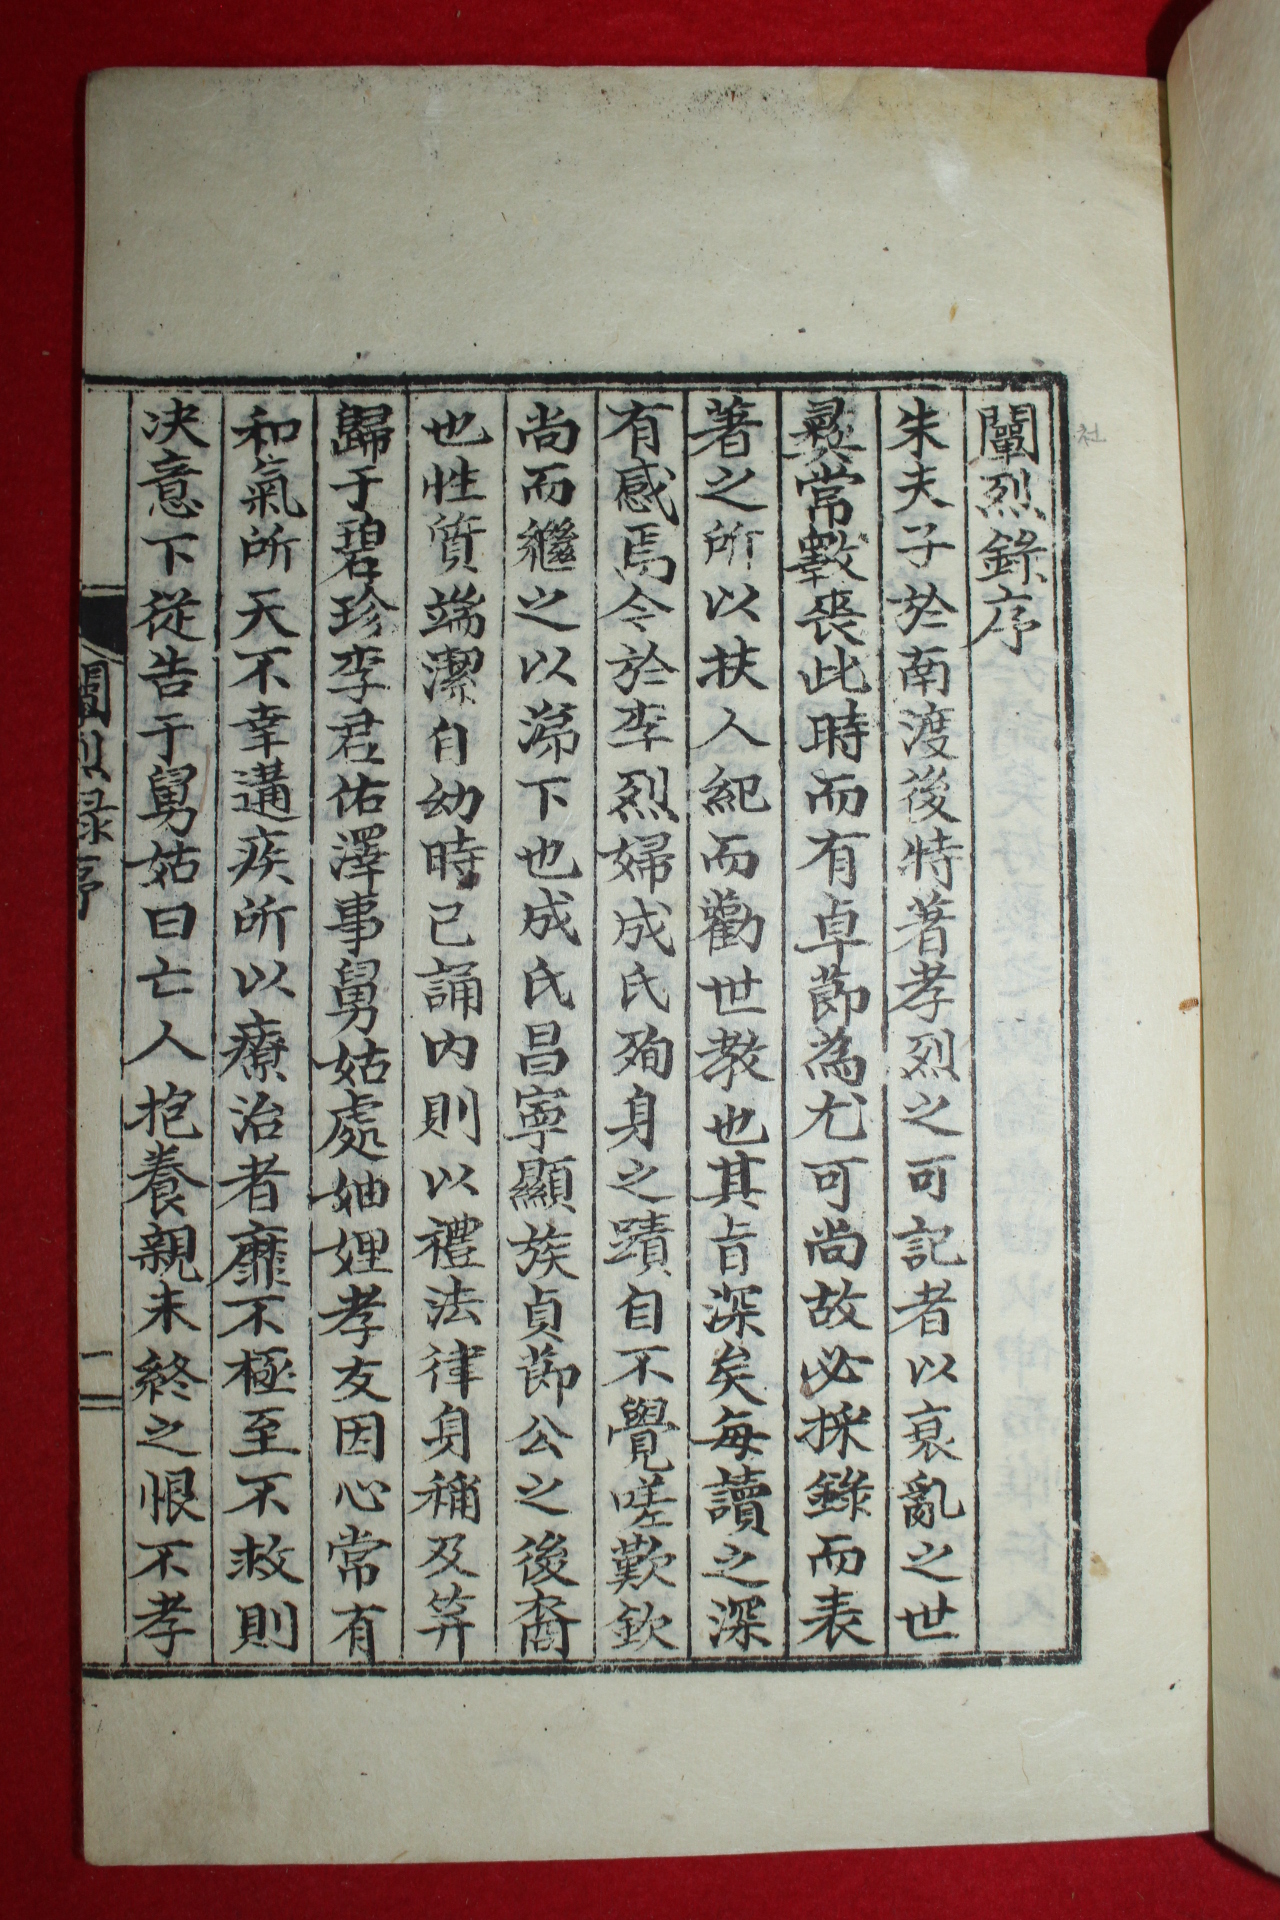 闡烈錄序
朱夫子於南渡後特著孝烈之可記者以衰亂之世
彛常斁喪此時而有卓節為尤可尚故必採錄而表
著之所以扶人紀而勸世教也其旨深矣每讀之深
有感焉今於李烈婦成氏殉身之蹟自不覺嗟歎欽
尚而繼之以涕下也成氏昌寧顯族貞節公之後裔
也性質端潔自幼時已誦內則以禮法律身稱及笄
歸于碧珍李君佑澤事舅姑處妯娌孝友因心常有
和氣所天不幸遘疾所以療治者靡不極至不救則
决意下從告于舅姑曰亡人抱養親未終之恨不孝
闡烈録序
一